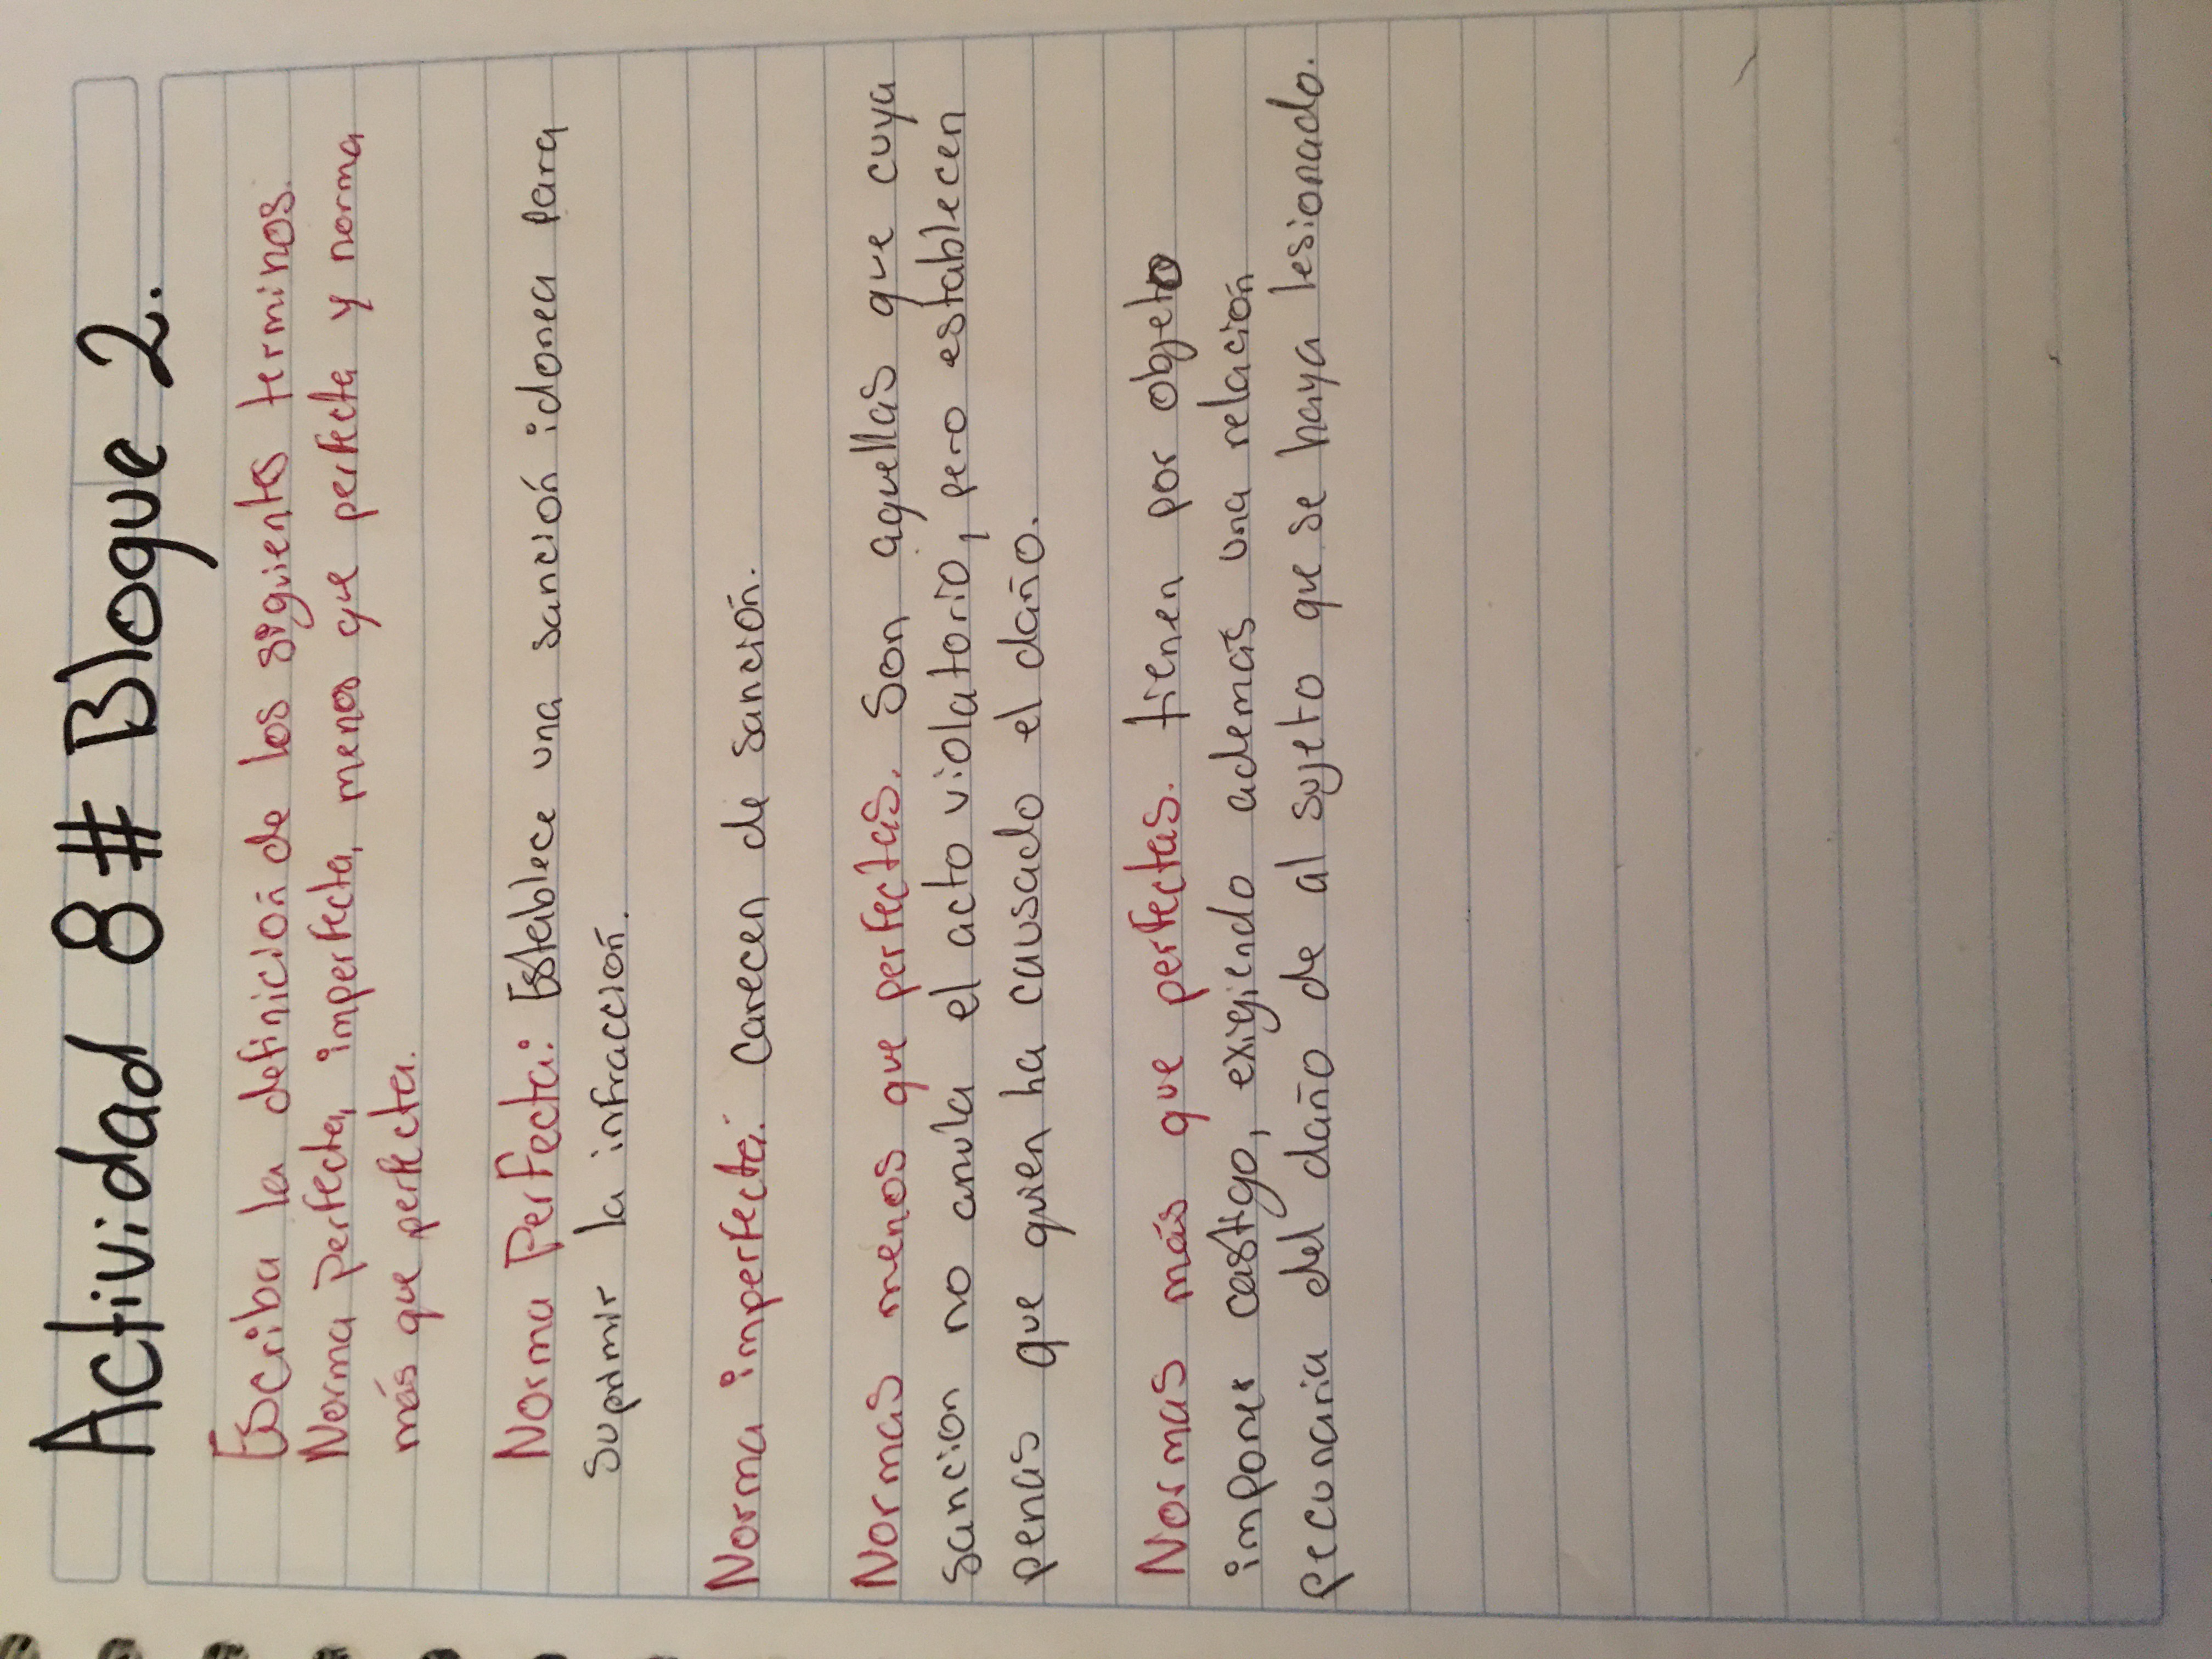 Actividad 8# Bloque 2.
Escriba la definición de los siguientes terminos.
Norma perfecta, imperfecta, menos que perfecta y norma
más que perfecta.
Norma Perfecta: Establece una sanción idonea para
suprimir la infracción.
Norma imperfecta: Carecen de sanción.
Normas menos que perfectas. Son aquellas que cuya
sancion no anula el acto violatorio, pero establecen
penas que quien ha causado el daño.
Normas más que perfectas. tienen por objeto
imponer castigo, exigiendo además una relación
pecunaria del daño de al sujeto que se haya lesionado.